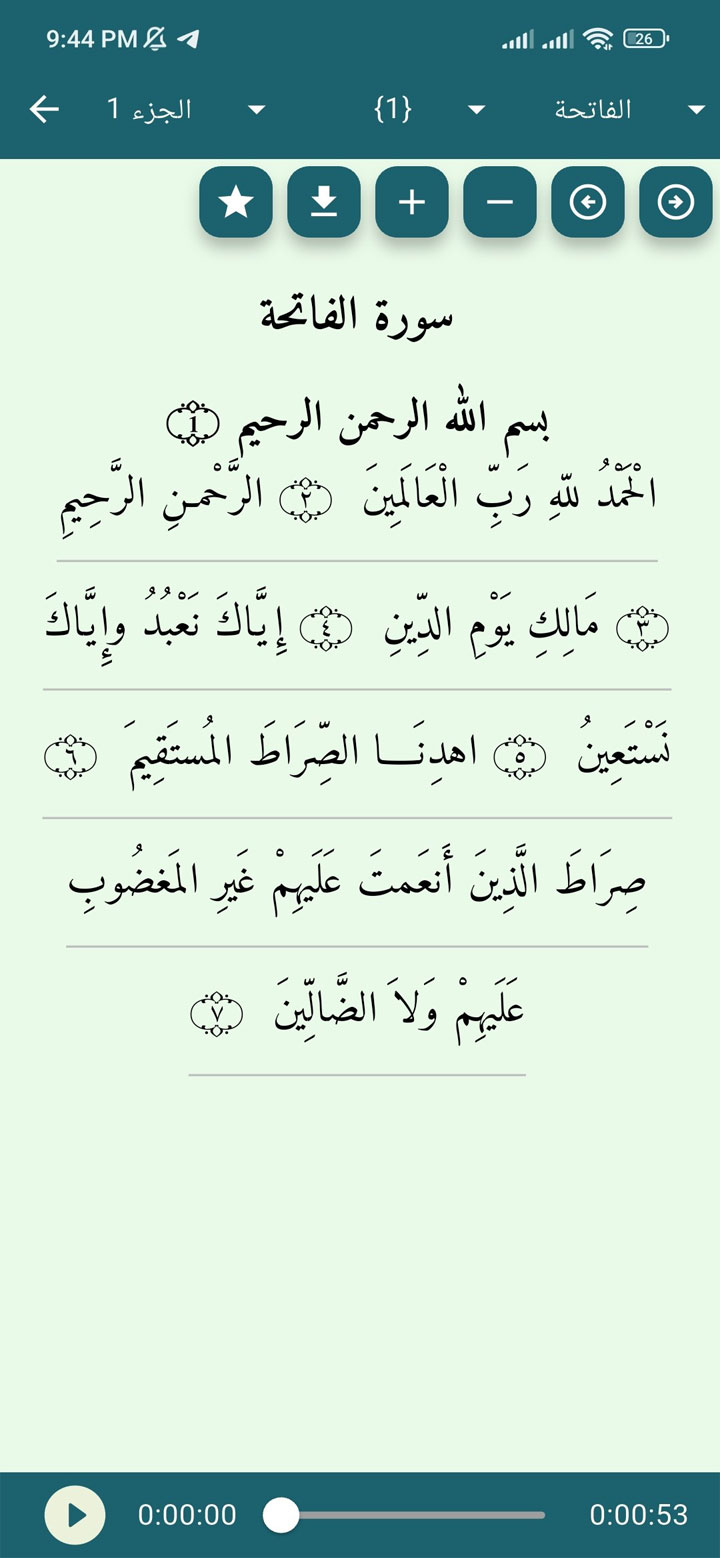 9:44 PM 26
الجزء 1 {1} الفاتحة
سورة الفاتحة
بسم الله الرحمن الرحيم ﴿1﴾
الْحَمْدُ للّهِ رَبِّ الْعَالَمِينَ ﴿٢﴾ الرَّحْمـنِ الرَّحِيمِ
﴿٣﴾ مَالِكِ يَوْمِ الدِّينِ ﴿٤﴾ إِيَّاكَ نَعْبُدُ وإِيَّاكَ
نَسْتَعِينُ ﴿٥﴾ اهدِنَــــا الصِّرَاطَ المُستَقِيمَ ﴿٦﴾
صِرَاطَ الَّذِينَ أَنعَمتَ عَلَيهِمْ غَيرِ المَغضُوبِ
عَلَيهِمْ وَلاَ الضَّالِّينَ ﴿٧﴾
0:00:00 0:00:53